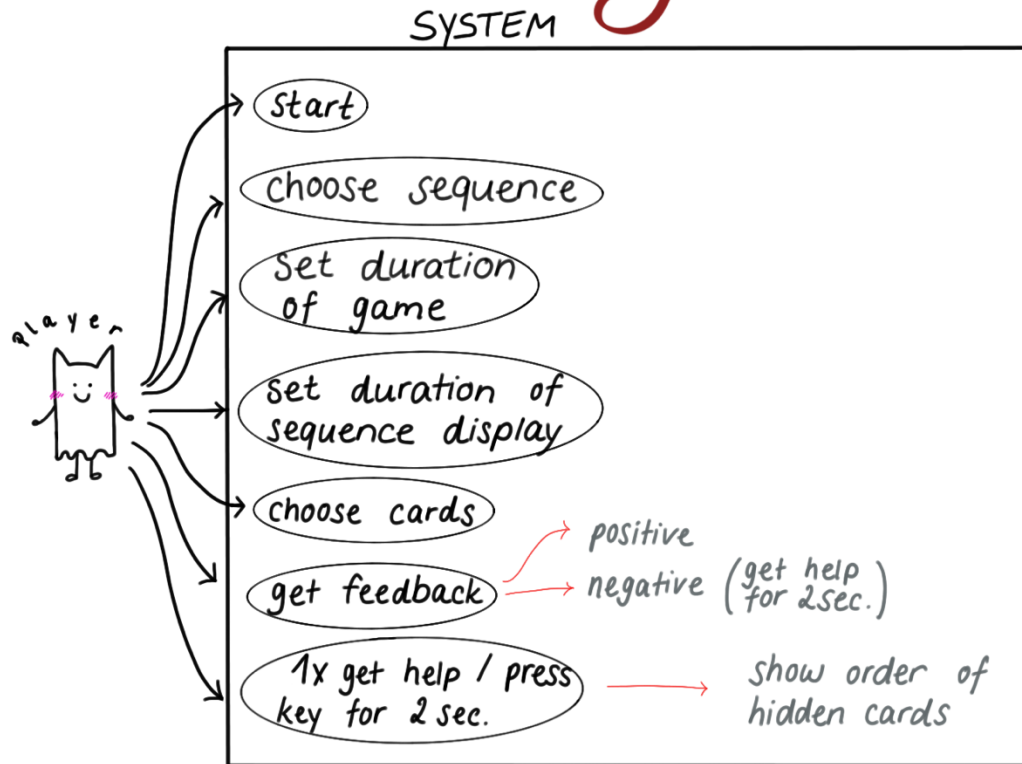 SYSTEM
start
choose sequence
set duration
of game
player
set duration of
sequence display
choose cards
positive
get feedback
negative (get help
for 2sec.)
1x get help / press
key for 2 sec.
show order of
hidden cards